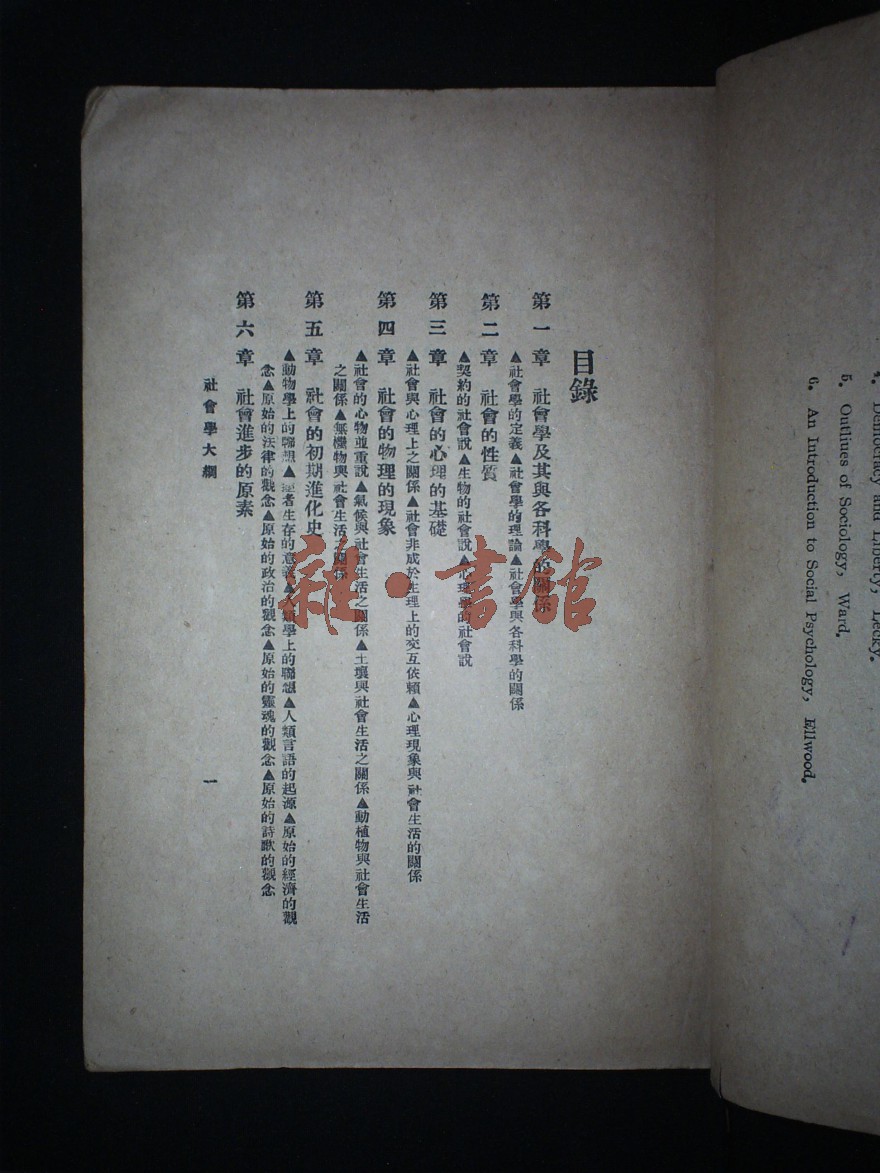 目錄
第一章 社會學及其與各科學的關係
▲社會學的定義▲社會學的理論▲社會學與各科學的關係
第二章 社會的性質
▲契約的社會說▲生物的社會說▲心理學的社會說
第三章 社會的心理的基礎
▲社會與心理上之關係▲社會非成於生理上的交互依賴▲心理現象與社會生活的關係
第四章 社會的物理的現象
▲社會的心物並重說▲氣候與社會生活之關係▲土壤與社會生活之關係▲動植物與社會生活
之關係▲無機物與社會生活之關係
第五章 社會的初期進化史
▲動物學上的聯想▲者生存的意義▲人類學上的聯想▲人類言語的起源▲原始的經濟的觀
念▲原始的法律的觀念▲原始的政治的觀念▲原始的靈魂的觀念▲原始的詩歌的觀念
第六章 社會進步的原素
社會學大綱
一
雜·書館
4. Democracy and Liberty, Lecky.
5. Outlines of Sociology, Ward.
6. An Introduction to Social Psychology, Ellwood.